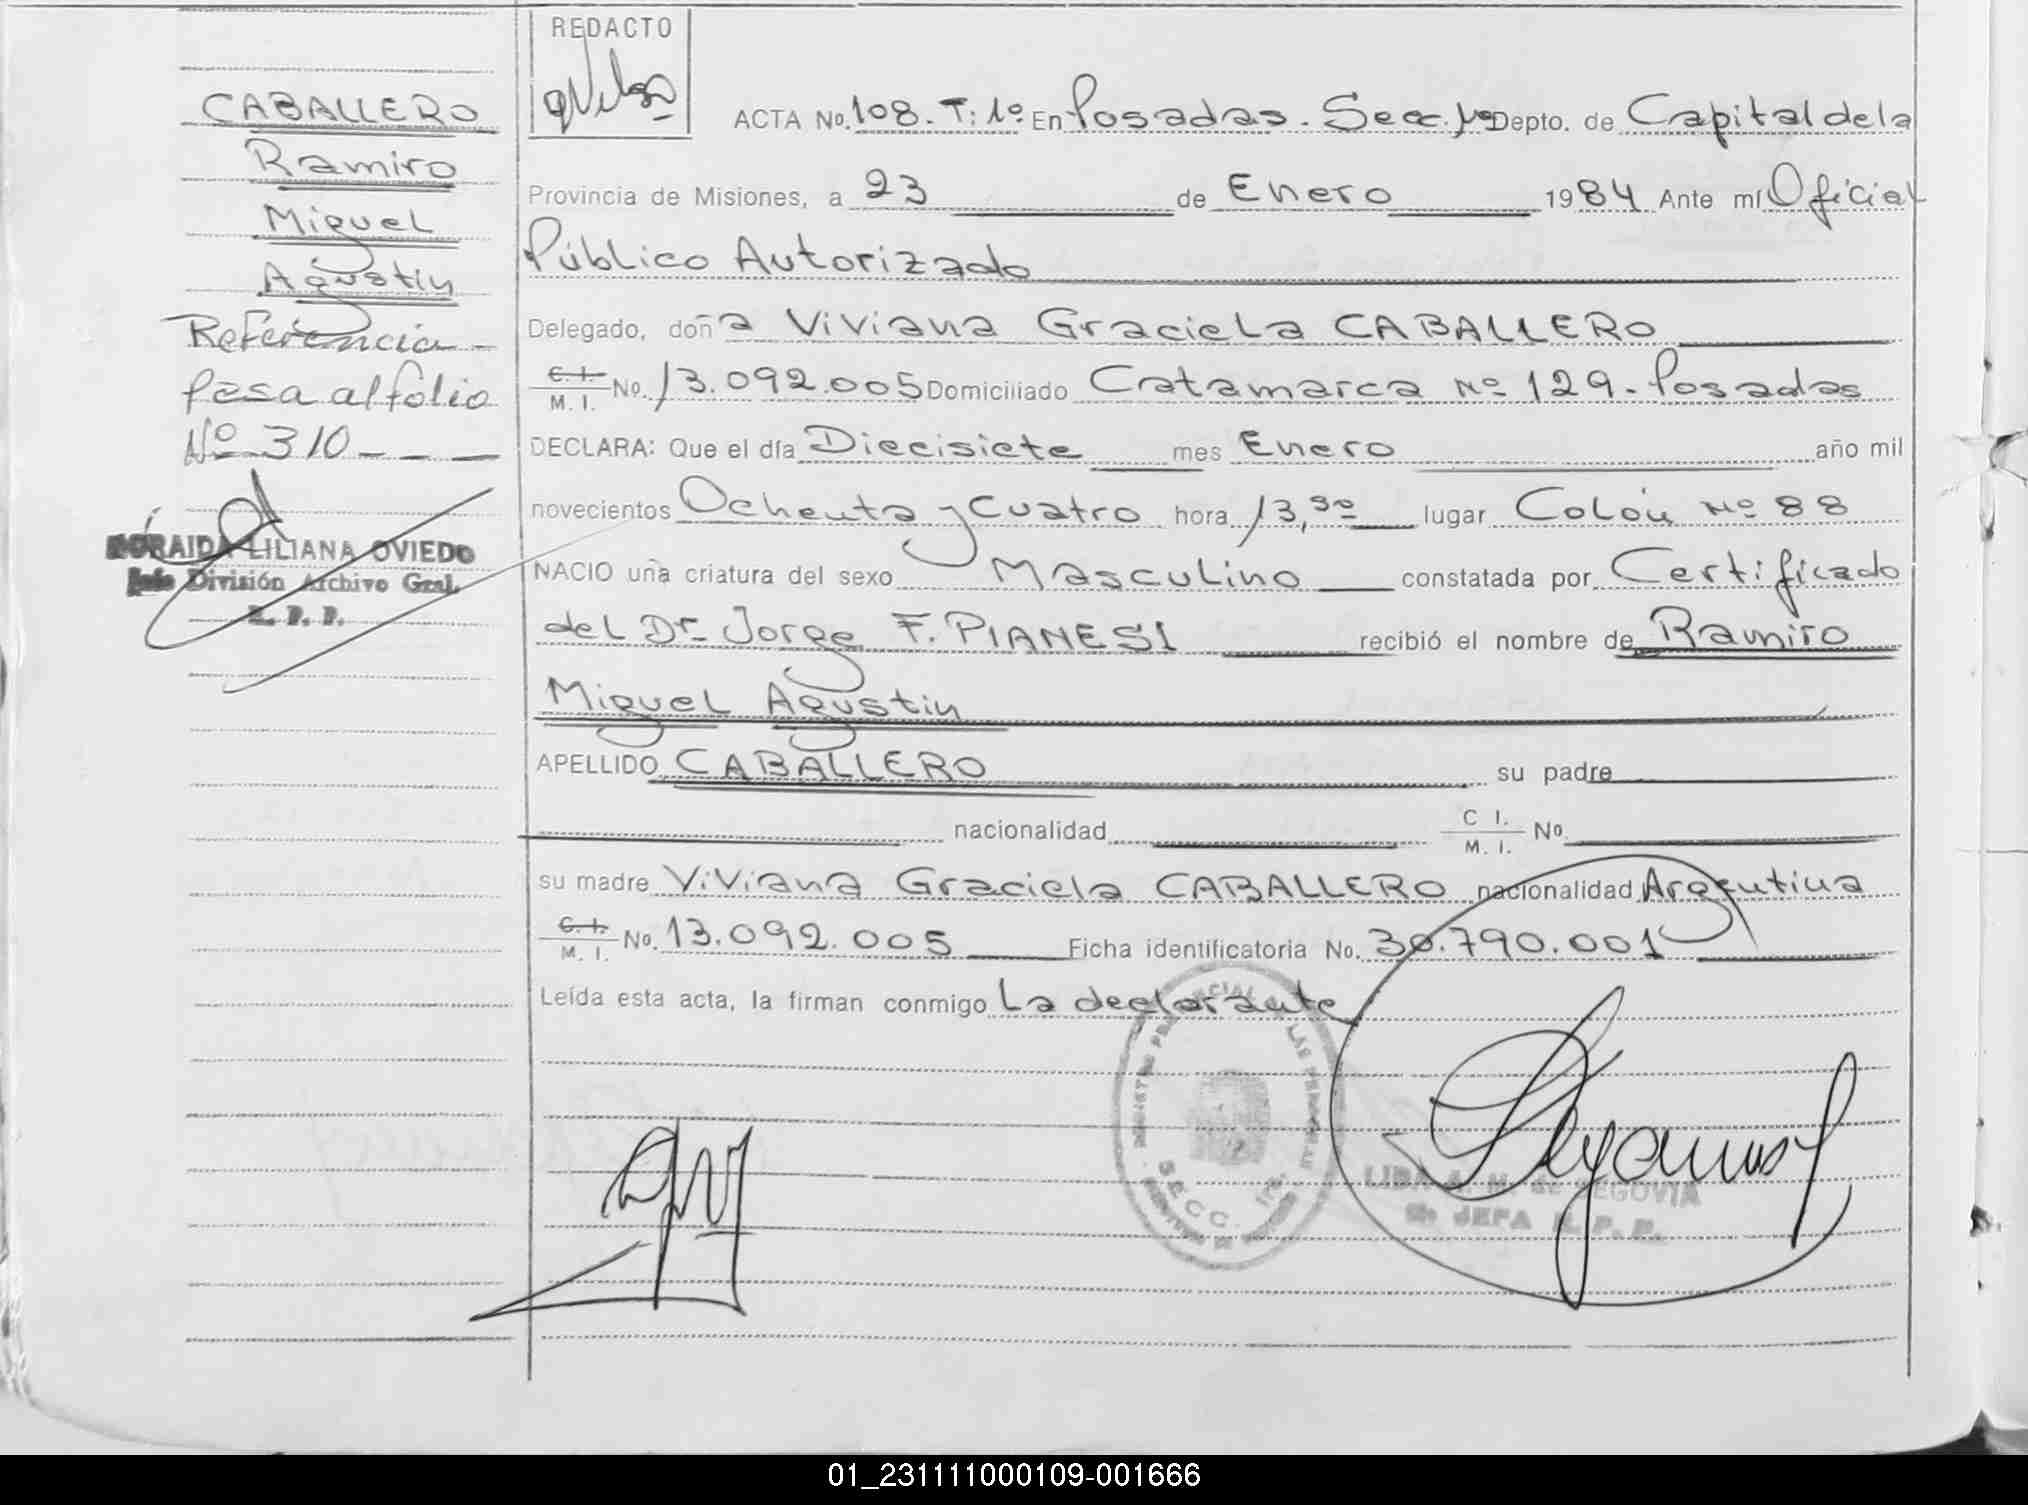 CABALLERO
Ramiro
Miguel
Agustín
Referencia
pasa al folio
Nº 310
LILIANA OVIEDO
Jefe División Archivo Gral.
R. P. P.
REDACTO
ACTA No. 108. T: 1º En Posadas. Secc. 1ª Depto. de Capital de la
Provincia de Misiones, a 23 de Enero 1984 Ante mí Oficial
Público Autorizado
Delegado, doña Viviana Graciela CABALLERO
C. I. / M. I. No. 13.092.005 Domiciliado Catamarca Nº 129. Posadas
DECLARA: Que el día Diecisiete mes Enero año mil
novecientos Ochenta y Cuatro hora 13,30 lugar Colón Nº 88
NACIO una criatura del sexo Masculino constatada por Certificado
del Dr. Jorge F. PIANESI recibió el nombre de Ramiro
Miguel Agustín
APELLIDO CABALLERO su padre
nacionalidad C I. / M. I. No.
su madre Viviana Graciela CABALLERO nacionalidad Argentina
C. I. / M. I. No. 13.092.005 Ficha identificatoria No. 30.790.001
Leída esta acta, la firman conmigo La declarante
SECC. 1ra.
LIBA A. M. de SEGOVIA
JEFA R. P. P.
01_231111000109-001666